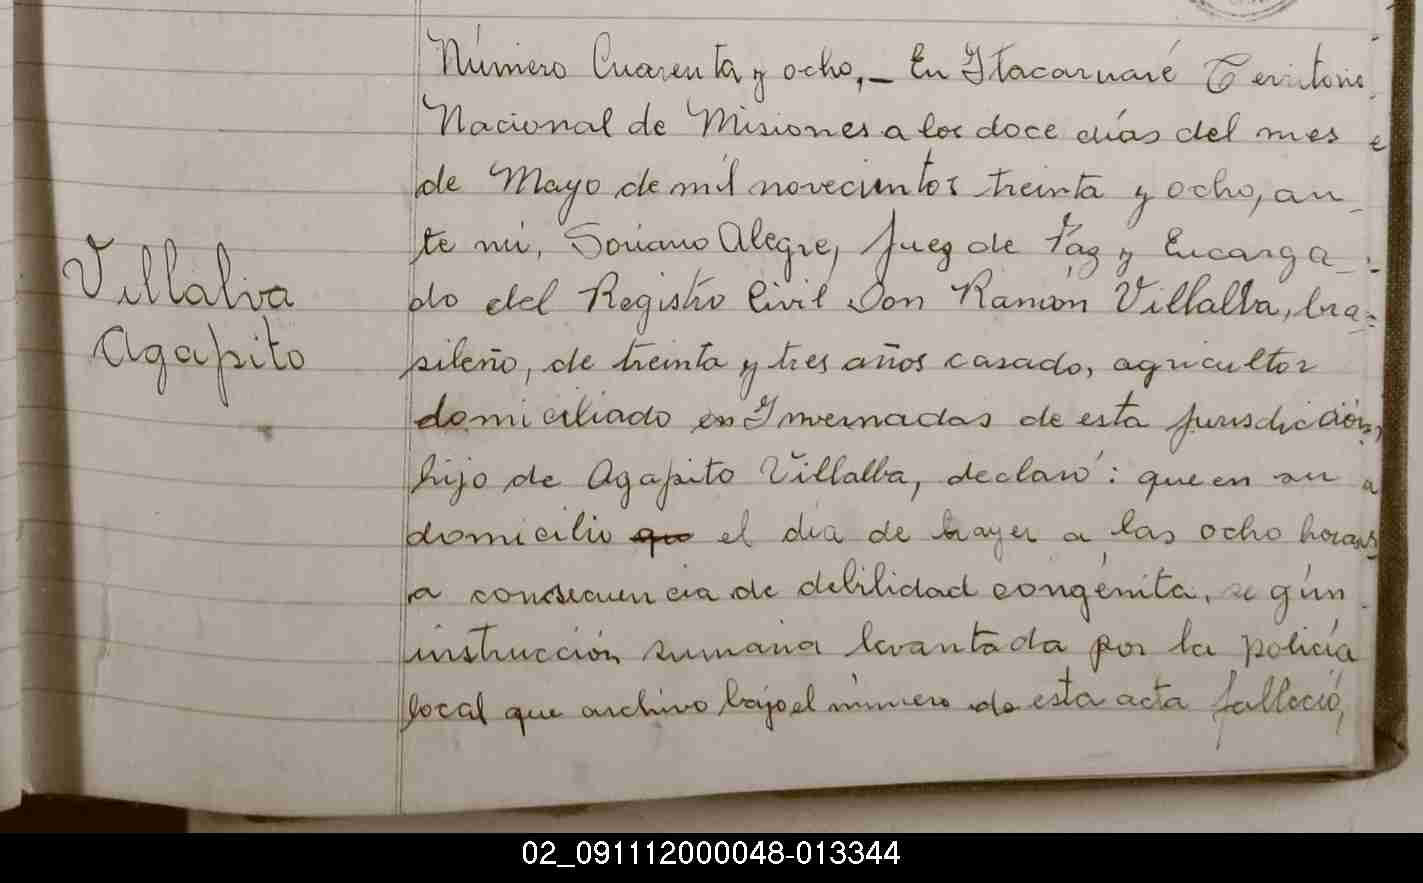 Número Cuarenta y ocho,_ En Itacaruaré Territorio
Nacional de Misiones a los doce días del mes
de Mayo de mil novecientos treinta y ocho, an_
te mi, Soriano Alegre, Juez de Páz y Encarga_
Villalva
do del Registro Civil Don Ramón Villalba, bra=
Agapito
sileño, de treinta y tres años casado, agricultor
domiciliado en Invernadas de esta jurisdicción,
hijo de Agapito Villalba, declaró: que en su
domicilio que el dia de hayer a las ocho horas
a consecuencia de debilidad congénita, según
instrucción sumaria levantada por la policía
local que archivo bajo el número de esta acta falleció,
02_091112000048-013344